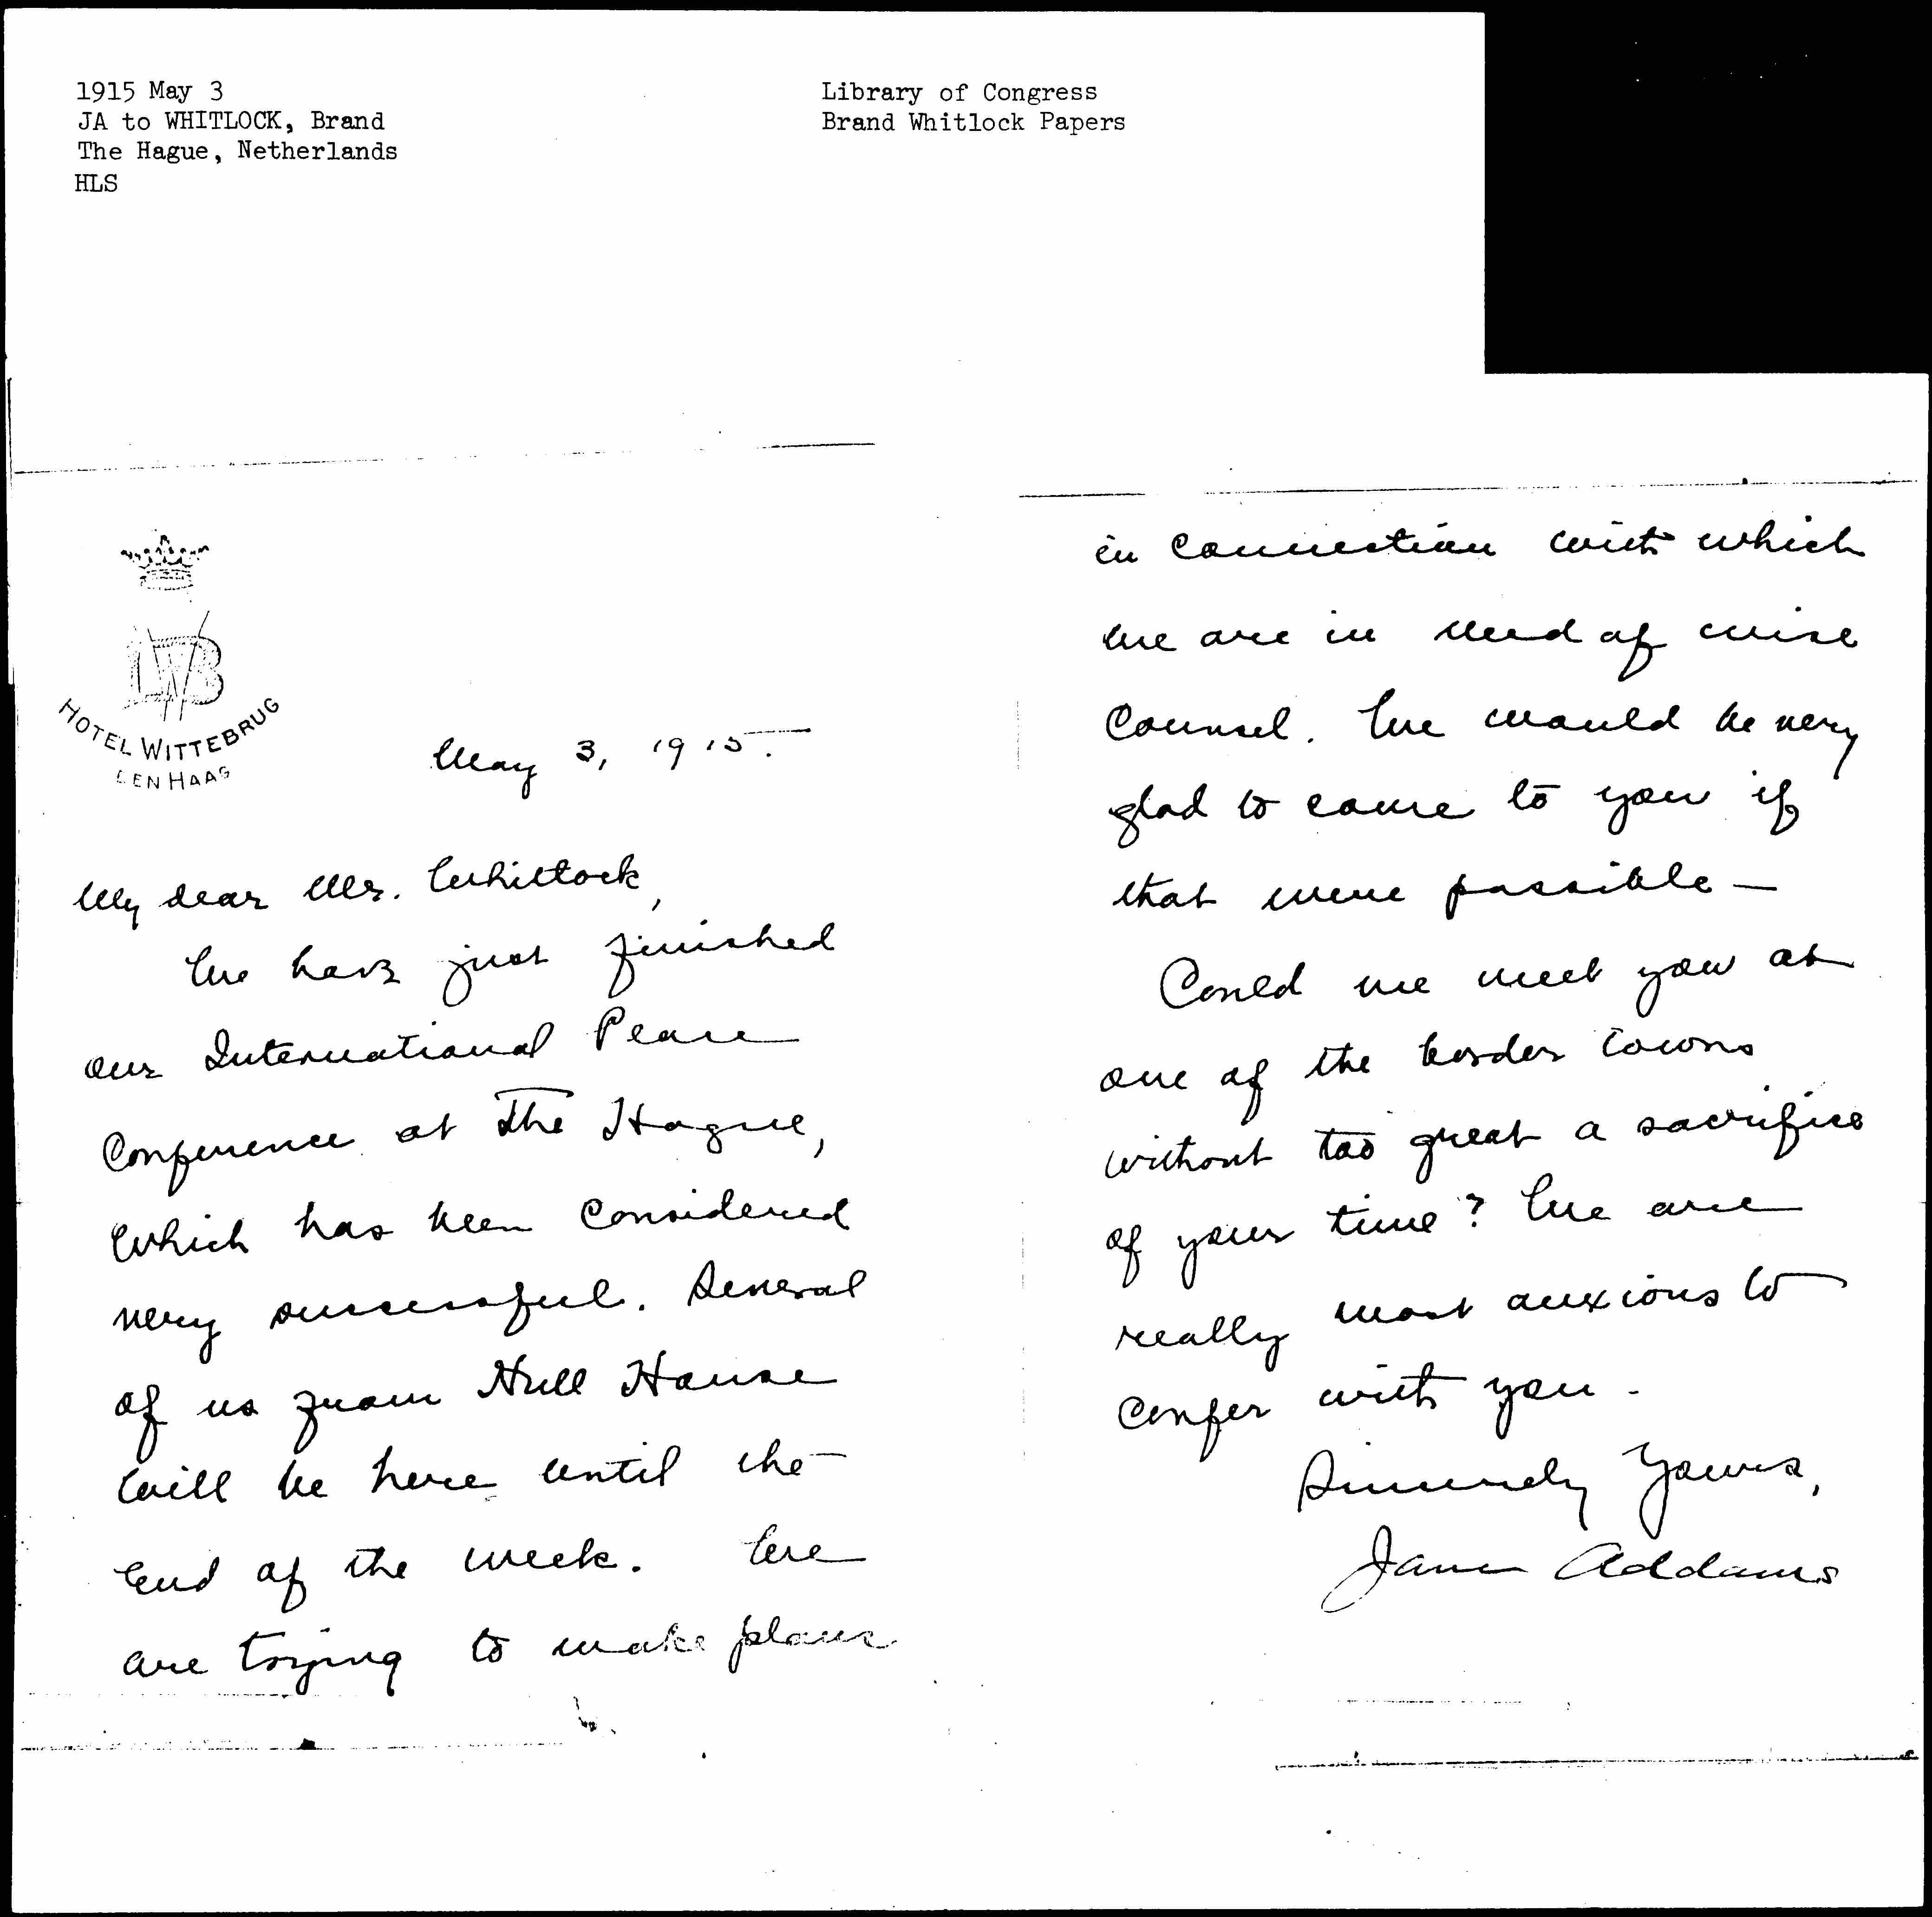 1915 May 3
JA to WHITLOCK, Brand
The Hague, Netherlands
HLS
Library of Congress
Brand Whitlock Papers
HOTEL WITTEBRUG
DEN HAAG
May 3, 1915.
My dear Mr. Whittock,
We have just finished
our International Peace
Conference at The Hague,
Which has been considered
very successful. Several
of us from Hull House
will be here until the
end of the week. We
are trying to make plans
in connection with which
we are in need of wise
Counsel. We would be very
glad to come to you if
that were possible —
Could we meet you at
one of the border towns
without too great a sacrifice
of your time? We are
really most anxious to
confer with you.
Sincerely yours,
Jane Addams